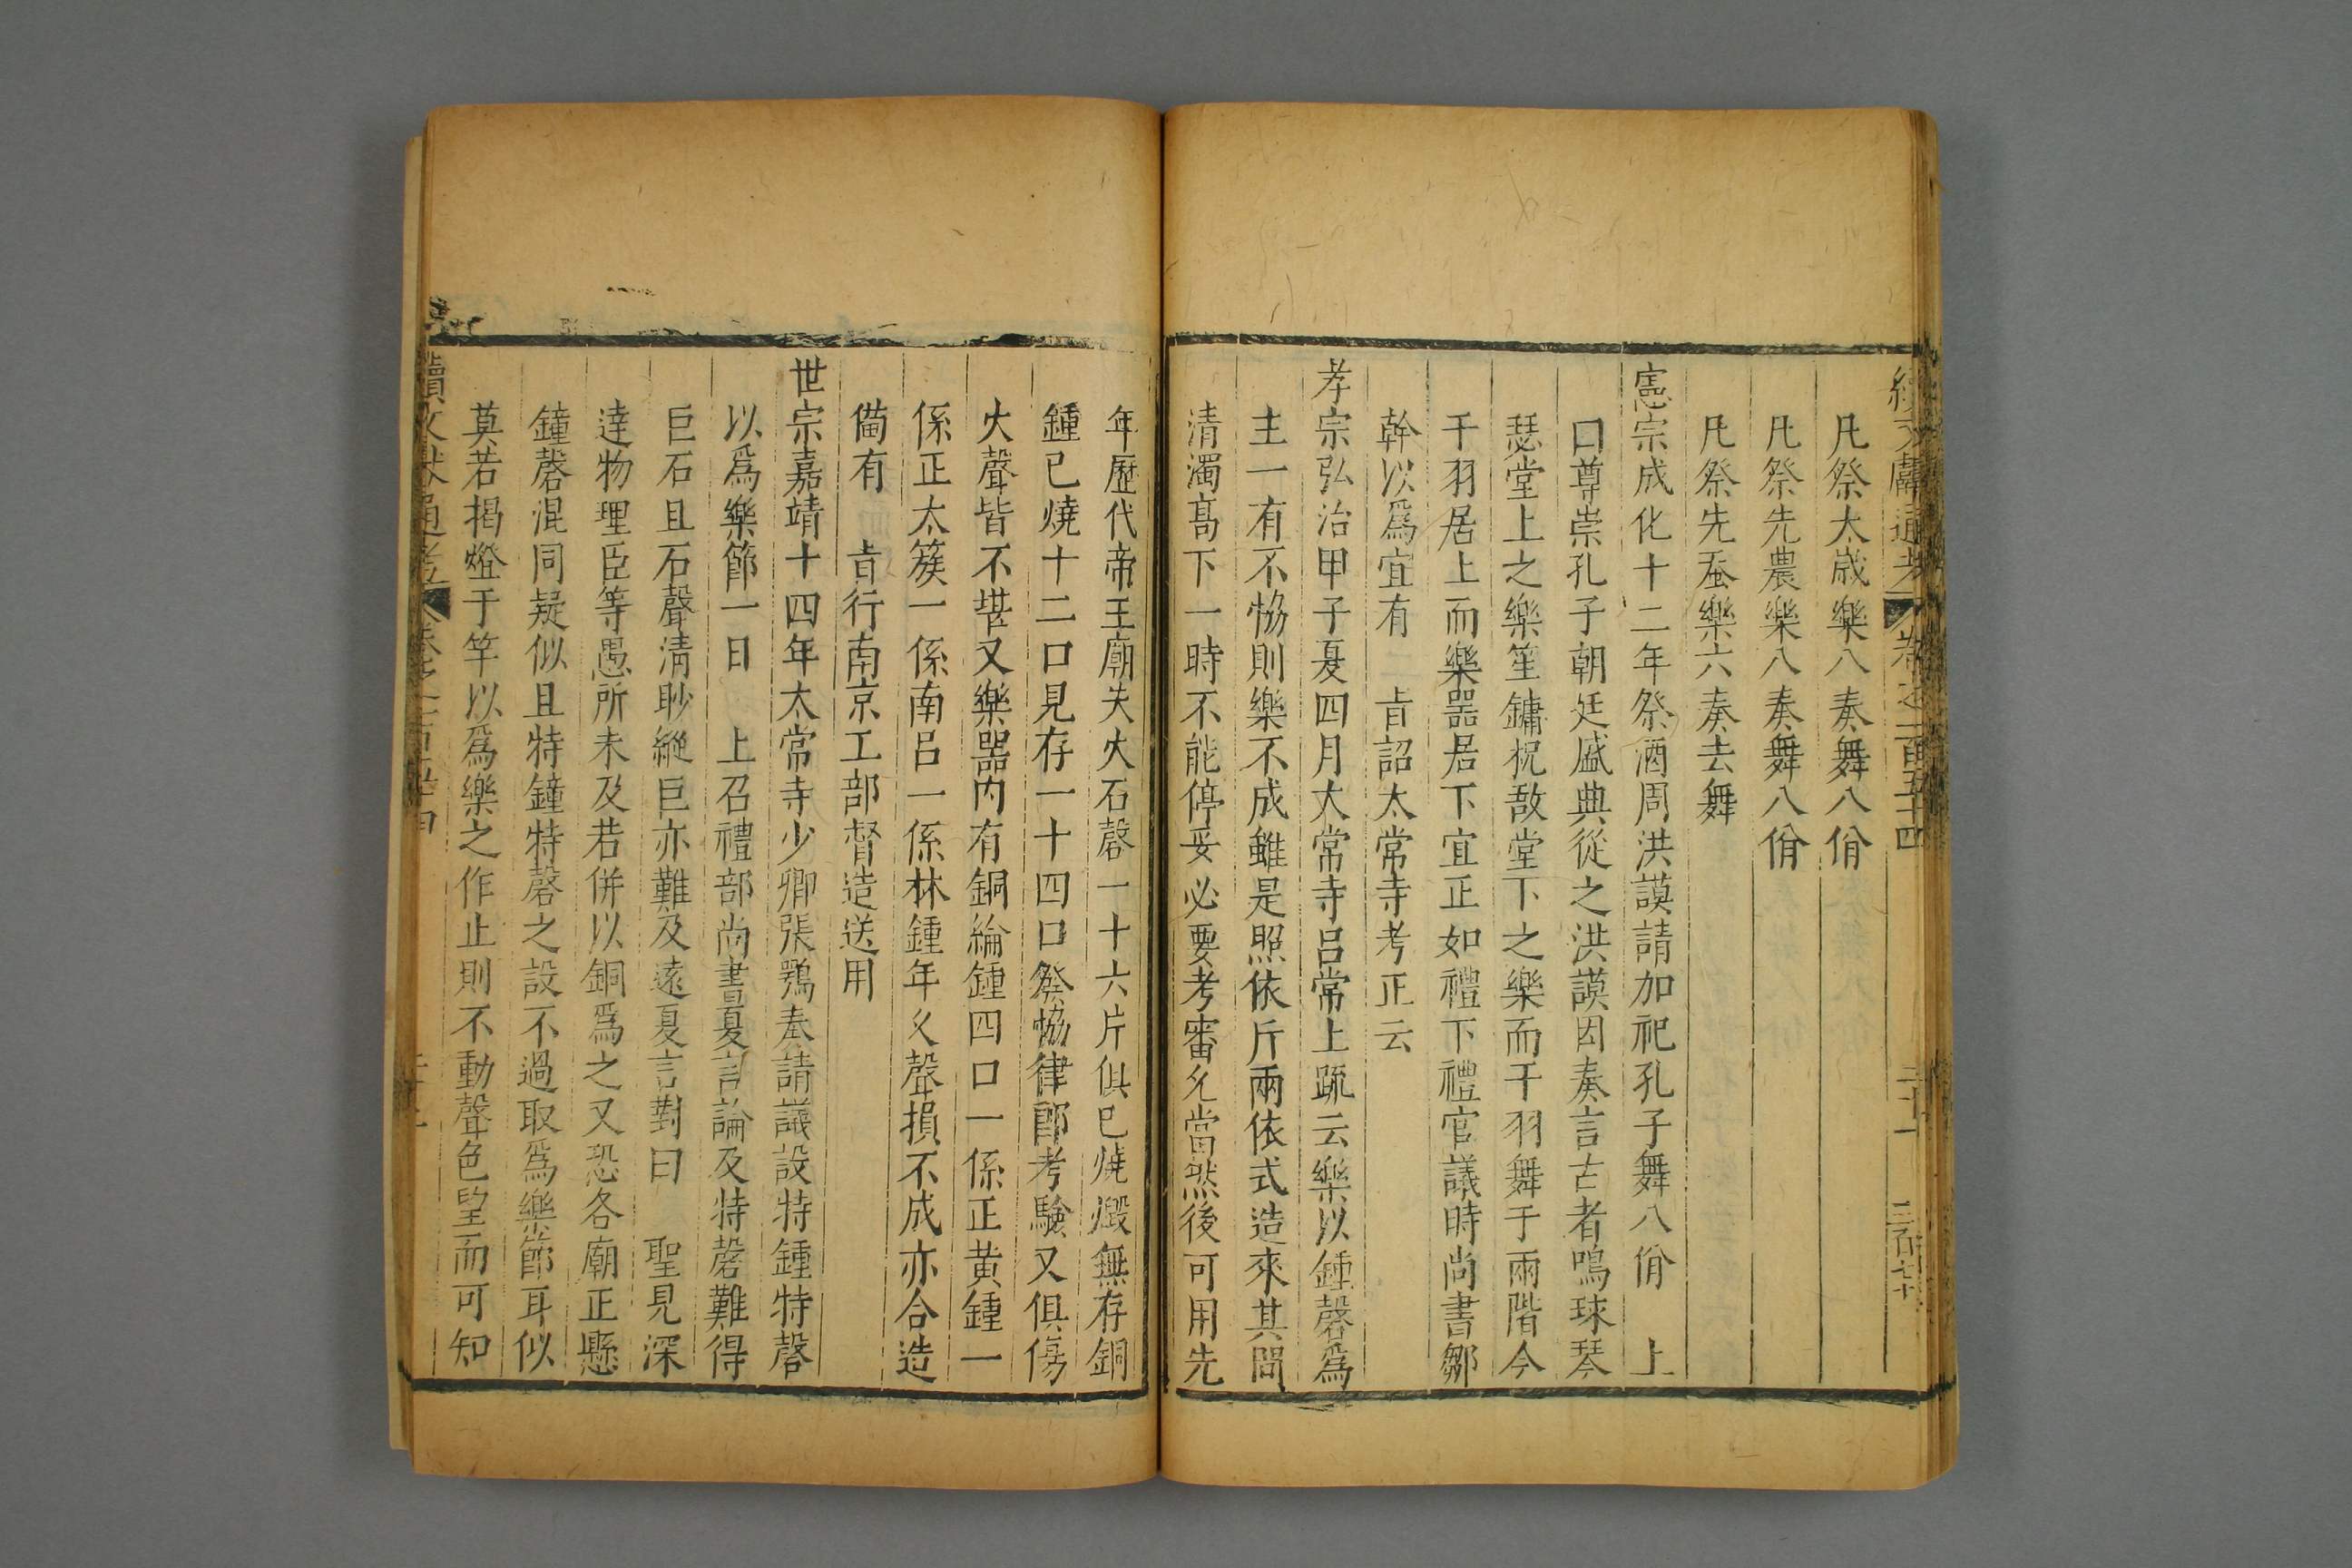 續文獻通考 卷之一百五十四 二十一 三百七十
凡祭太歲樂八奏舞八佾
凡祭先農樂八奏舞八佾
凡祭先蚕樂六奏去舞
憲宗成化十二年祭酒周洪謨請加祀孔子舞八佾 上
曰尊崇孔子朝廷盛典從之洪謨因奏言古者鳴球琴
瑟堂上之樂笙鏞柷敔堂下之樂而干羽舞于兩階今
干羽居上而樂噐居下宜正如禮下禮官議時尚書鄒
幹以爲宜有 㫖詔太常寺考正云
孝宗弘治甲子夏四月太常寺呂常上疏云樂以鍾磬爲
主一有不恊則樂不成雖是照依斤兩依式造來其間
清濁髙下一時不能停妥必要考審允當然後可用先
年歷代帝王廟失火石磬一十六片俱已燒燬無存銅
鍾已燒十二口見存一十四口祭恊律郎考驗又俱傷
火聲皆不堪又樂噐內有銅綸鍾四口一係正黄鍾一
係正太簇一係南呂一係林鍾年乆聲損不成亦合造
俻有 㫖行南京工部督造送用
世宗嘉靖十四年太常寺少卿張鶚奏請議設特鍾特磬
以爲樂節一日 上召禮部尚書夏言論及特磬難得
巨石且石聲清眇縱巨亦難及遠夏言對曰 聖見深
達物理臣等愚所未及若併以銅爲之又恐各廟正懸
鐘磬混同疑似且特鐘特磬之設不過取爲樂節耳似
莫若揭燈于竿以爲樂之作止則不動聲色望而可知
續文獻通考 卷之一百五十四